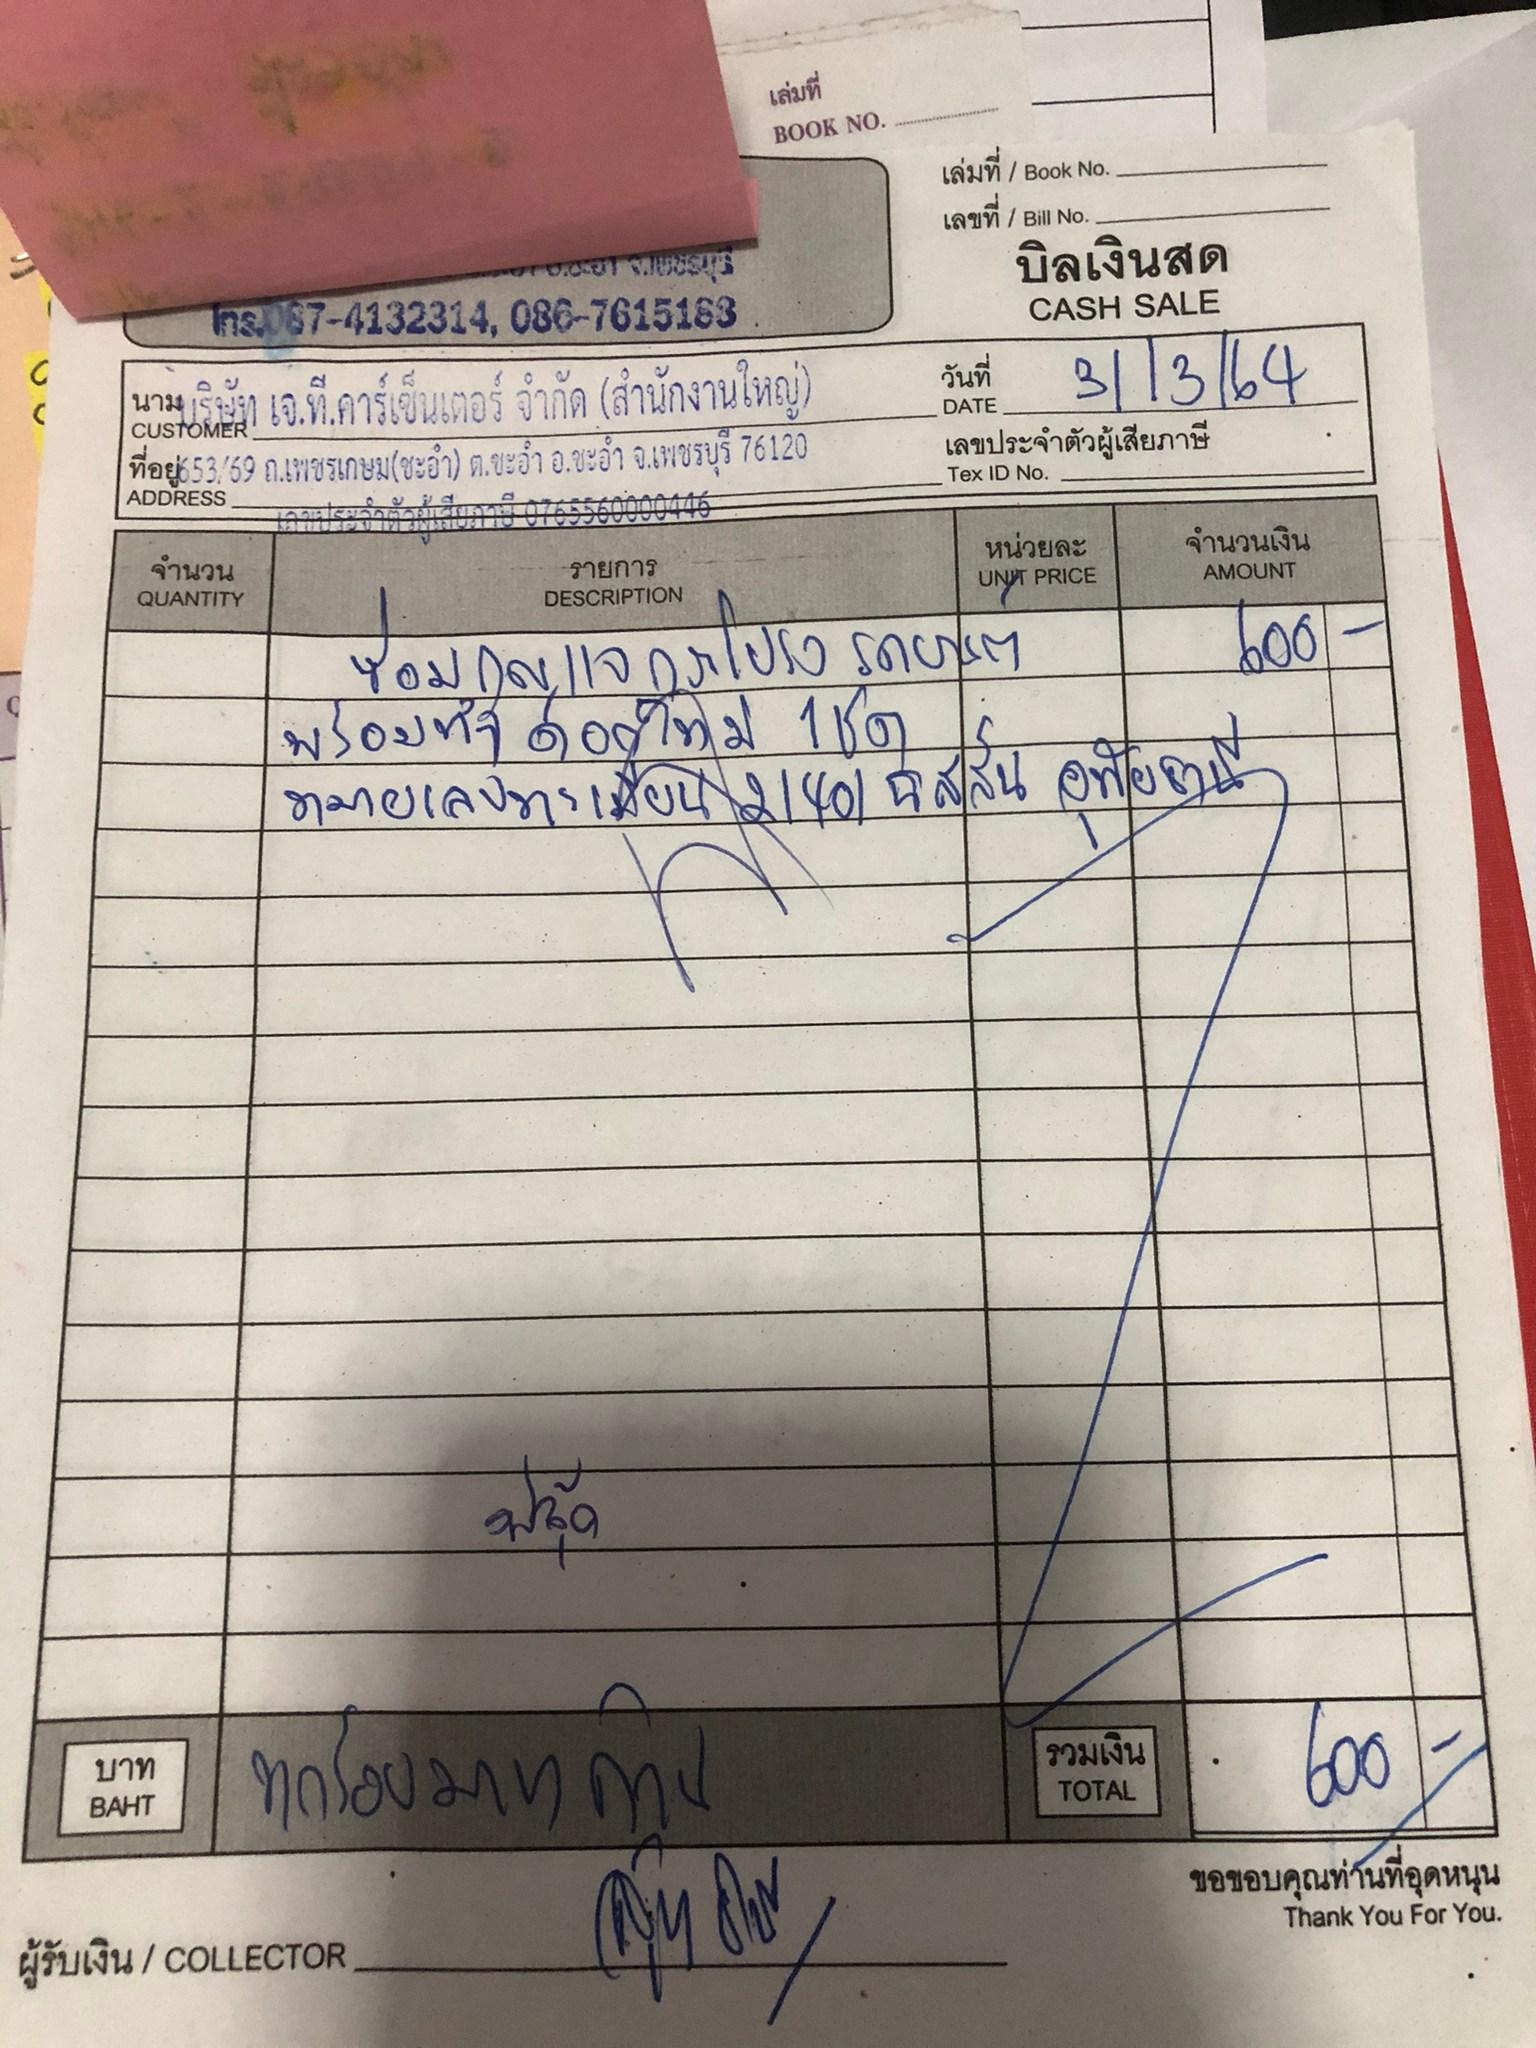 เล่มที่
BOOK NO.
เล่มที่ / Book No.
เลขที่ / Bill No.
บิลเงินสด
CASH SALE
อ.ชะอำ จ.เพชรบุรี
โทร.087-4132314, 086-7615183
นาม บริษัท เจ.ที.คาร์เซ็นเตอร์ จำกัด (สำนักงานใหญ่)
CUSTOMER
วันที่ 31/3/64
DATE
ที่อยู่ 653/69 ถ.เพชรเกษม(ชะอำ) ต.ชะอำ อ.ชะอำ จ.เพชรบุรี 76120
ADDRESS
เลขประจำตัวผู้เสียภาษี
Tex ID No.
เลขประจำตัวผู้เสียภาษี 0765560000446
จำนวน รายการ หน่วยละ จำนวนเงิน
QUANTITY DESCRIPTION UNIT PRICE AMOUNT
ซ่อมกุญแจกระโปรง รถยนต์ 600 -
พร้อมทำ 1 ชุด
หมายเลขทะเบียน อุทัยธานี
บาท หกร้อยบาทถ้วน รวมเงิน 600 -
BAHT TOTAL
ขอขอบคุณท่านที่อุดหนุน
Thank You For You.
ผู้รับเงิน / COLLECTOR